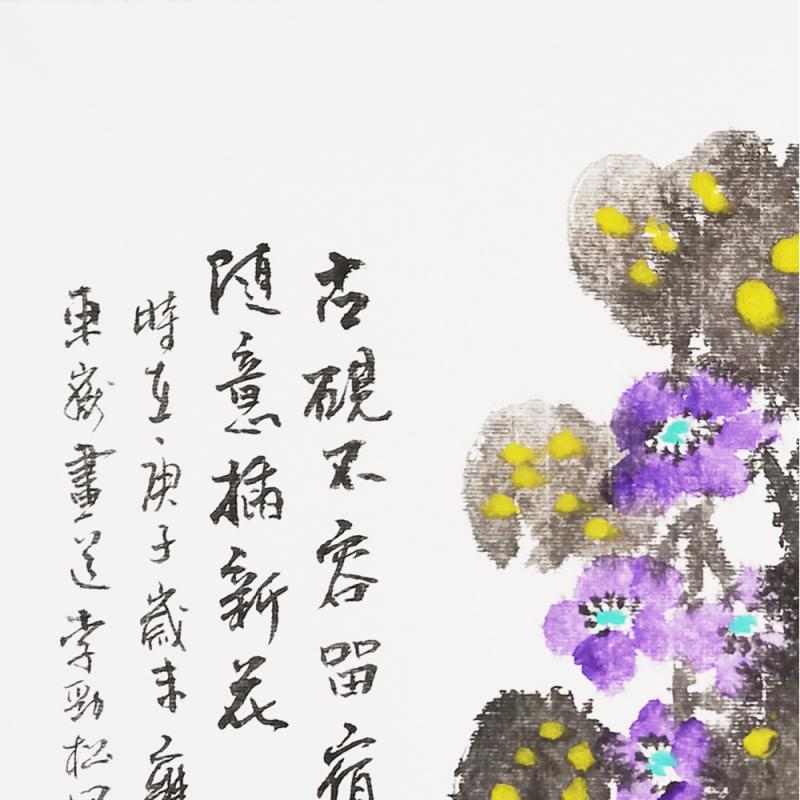 古硯不容留宿
隨意插新花
時在庚子歲末
東嶽畫道李勁松